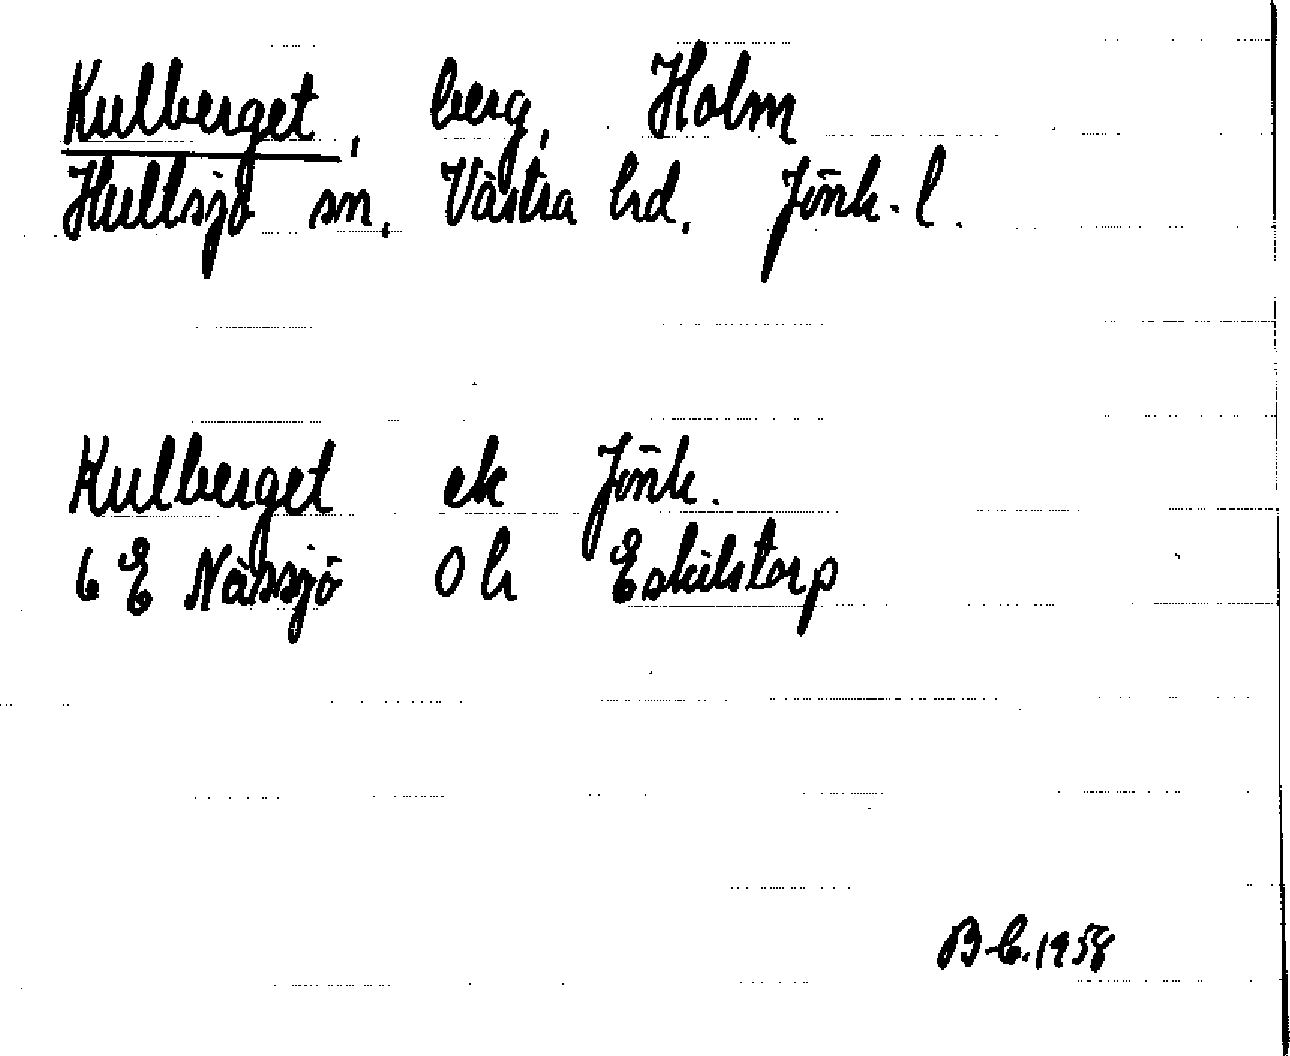 Kulberget, berg, Holm
Hultsjö sn, Västra hd, Jönk. l.
Kulberget ek Jönk.
6 E Nässjö 0 h Eskilstorp
B-C. 1958